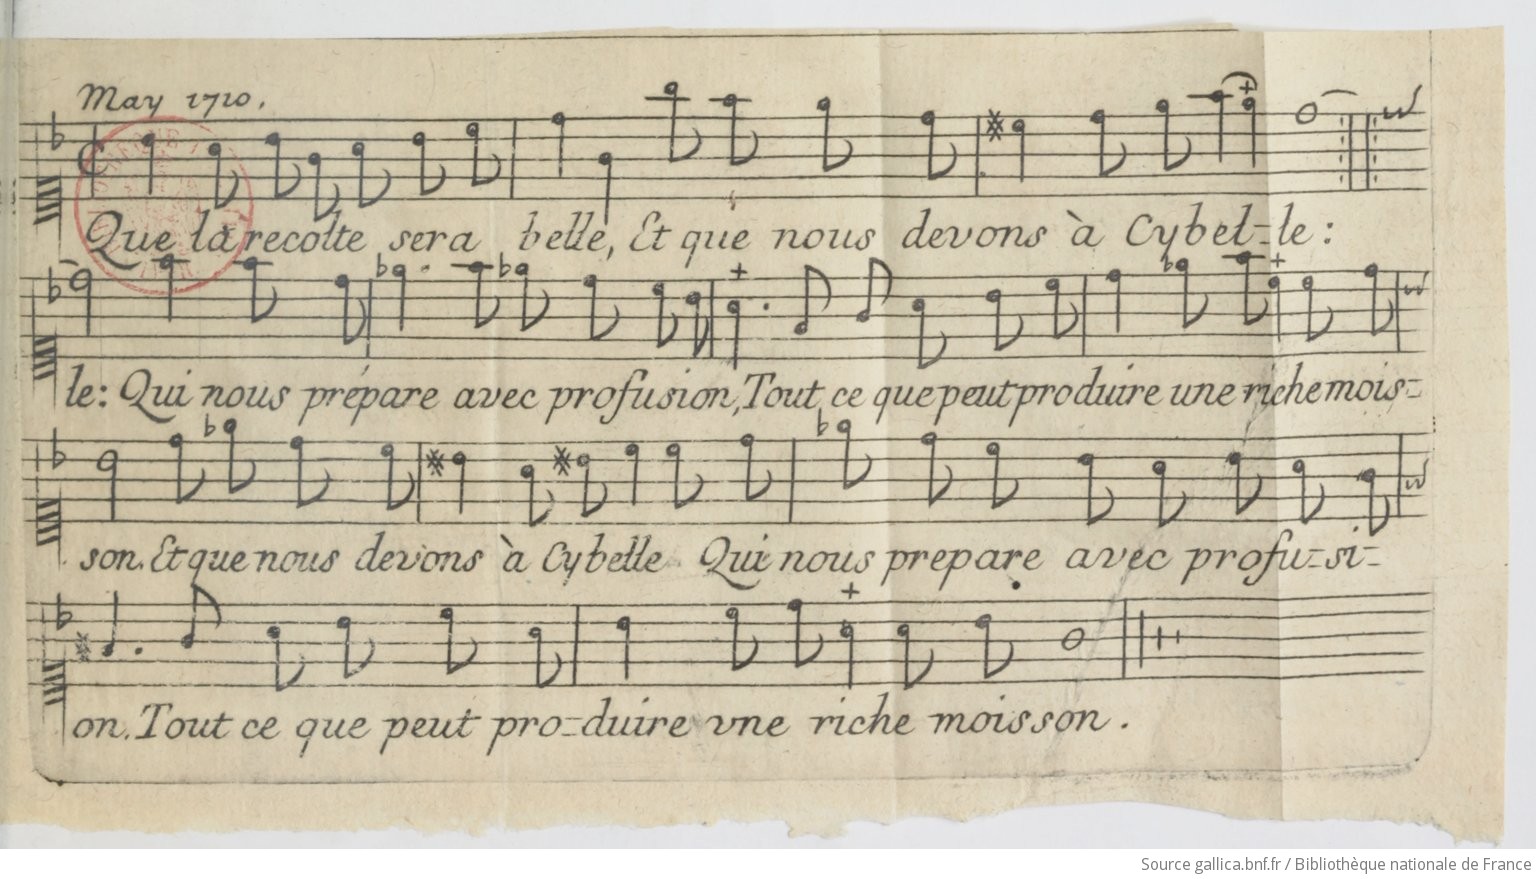 May 1710.
Que la recolte sera belle, Et que nous devons à Cybel=le:
le: Qui nous prépare avec profusion, Tout ce que peut produire une riche mois=
son. Et que nous devons à Cybelle Qui nous prepare avec profu=si=
on. Tout ce que peut pro=duire vne riche moisson.
Source gallica.bnf.fr / Bibliothèque nationale de France